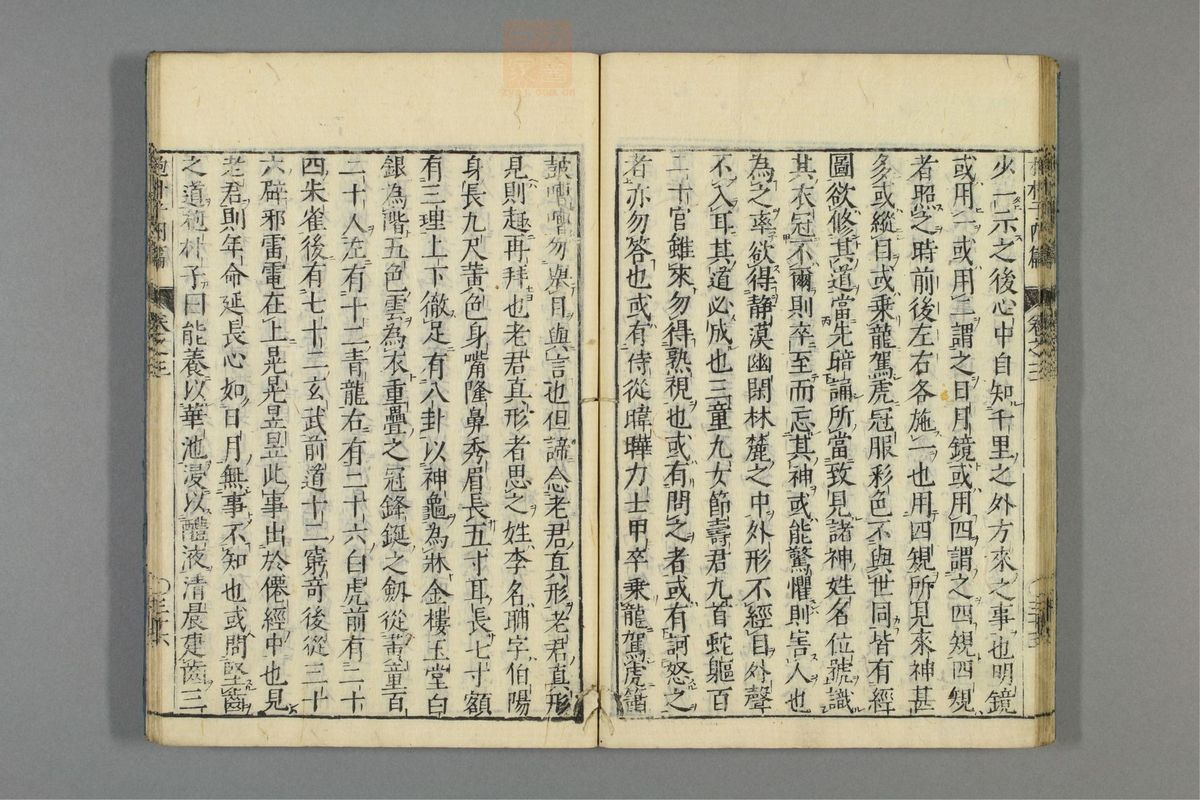 少一示之後心中自知千里之外方來之事也明鏡
或用一或用二謂之日月鏡或用四謂之四規四規
者照之時前後左右各施一也用四規所見來神甚
多或縱目或乘龍駕虎冠服彩色不與世同皆有經
圖欲修其道當先暗誦所當致見諸神姓名位號識
其衣冠不爾則卒至而忘其神或能驚懼則害人也
為之率欲得静漠幽閑林麓之中外形不經目外聲
不入耳其道必成也三童九女節壽君九首蛇軀百
二十官雖來勿得熟視也或有問之者或有訶怒之
者亦勿答也或有侍從暐曄力士甲卒乘龍駕虎簫
鼓嘈嘈勿舉目與言也但諦念老君真形老君真形
見則起再拜也老君真形者思之姓李名聃字伯陽
身長九尺黃色鳥嘴隆鼻秀眉長五寸耳長七寸額
有三理上下徹足有八卦以神龜為牀金樓玉堂白
銀為階五色雲為衣重疊之冠鋒鋋之劔從黃童百
二十人左有十二青龍右有二十六白虎前有二十
四朱雀後有七十二玄武前道十二窮竒後從三十
六辟邪雷電在上晃晃昱昱此事出於僊經中也見
老君則年命延長心如日月無事不知也或問堅齒
之道抱朴子曰能養以華池浸以醴液清晨建齒三
抱朴子内篇
卷之三